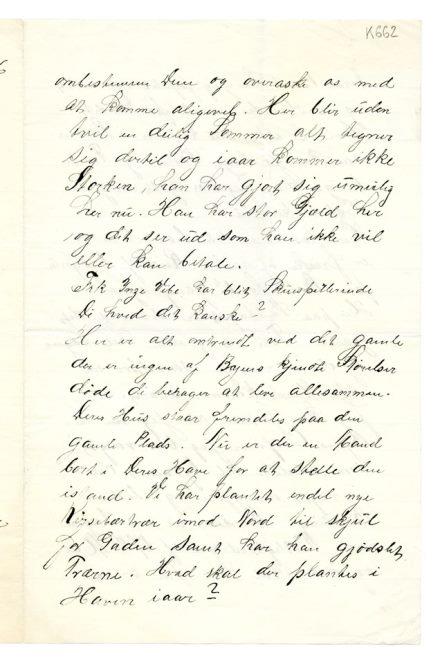 K662
ombestemme Dem og overaske os med
at komme aligevel. Her blir uden
tvil en deilig Sommer alt tegner
sig dertil og iaar kommer ikke
Storken, han har gjort sig umulig
her nu. Han har stor Gjæld her
og det ser ud som han ikke vil
eller kan betale.
Frk Inge Vibe har blit Skuespillerinde
De hved det kanske?
Her er alt omtrent ved det gamle
der er ingen af Byens kjendte Størelser
døde de behager at leve allesammen.
Deres Hus staar fremdeles paa den
gamle Plads. Nu er der en Mand
bort i Deres Have for at stelle den
i stand. Vi har plantet endel nye
Kirsebærtrær imod Nord til skjul
for Gaden samt har han gjødslet
Trærne. Hvad skal der plantes i
Haven iaar?